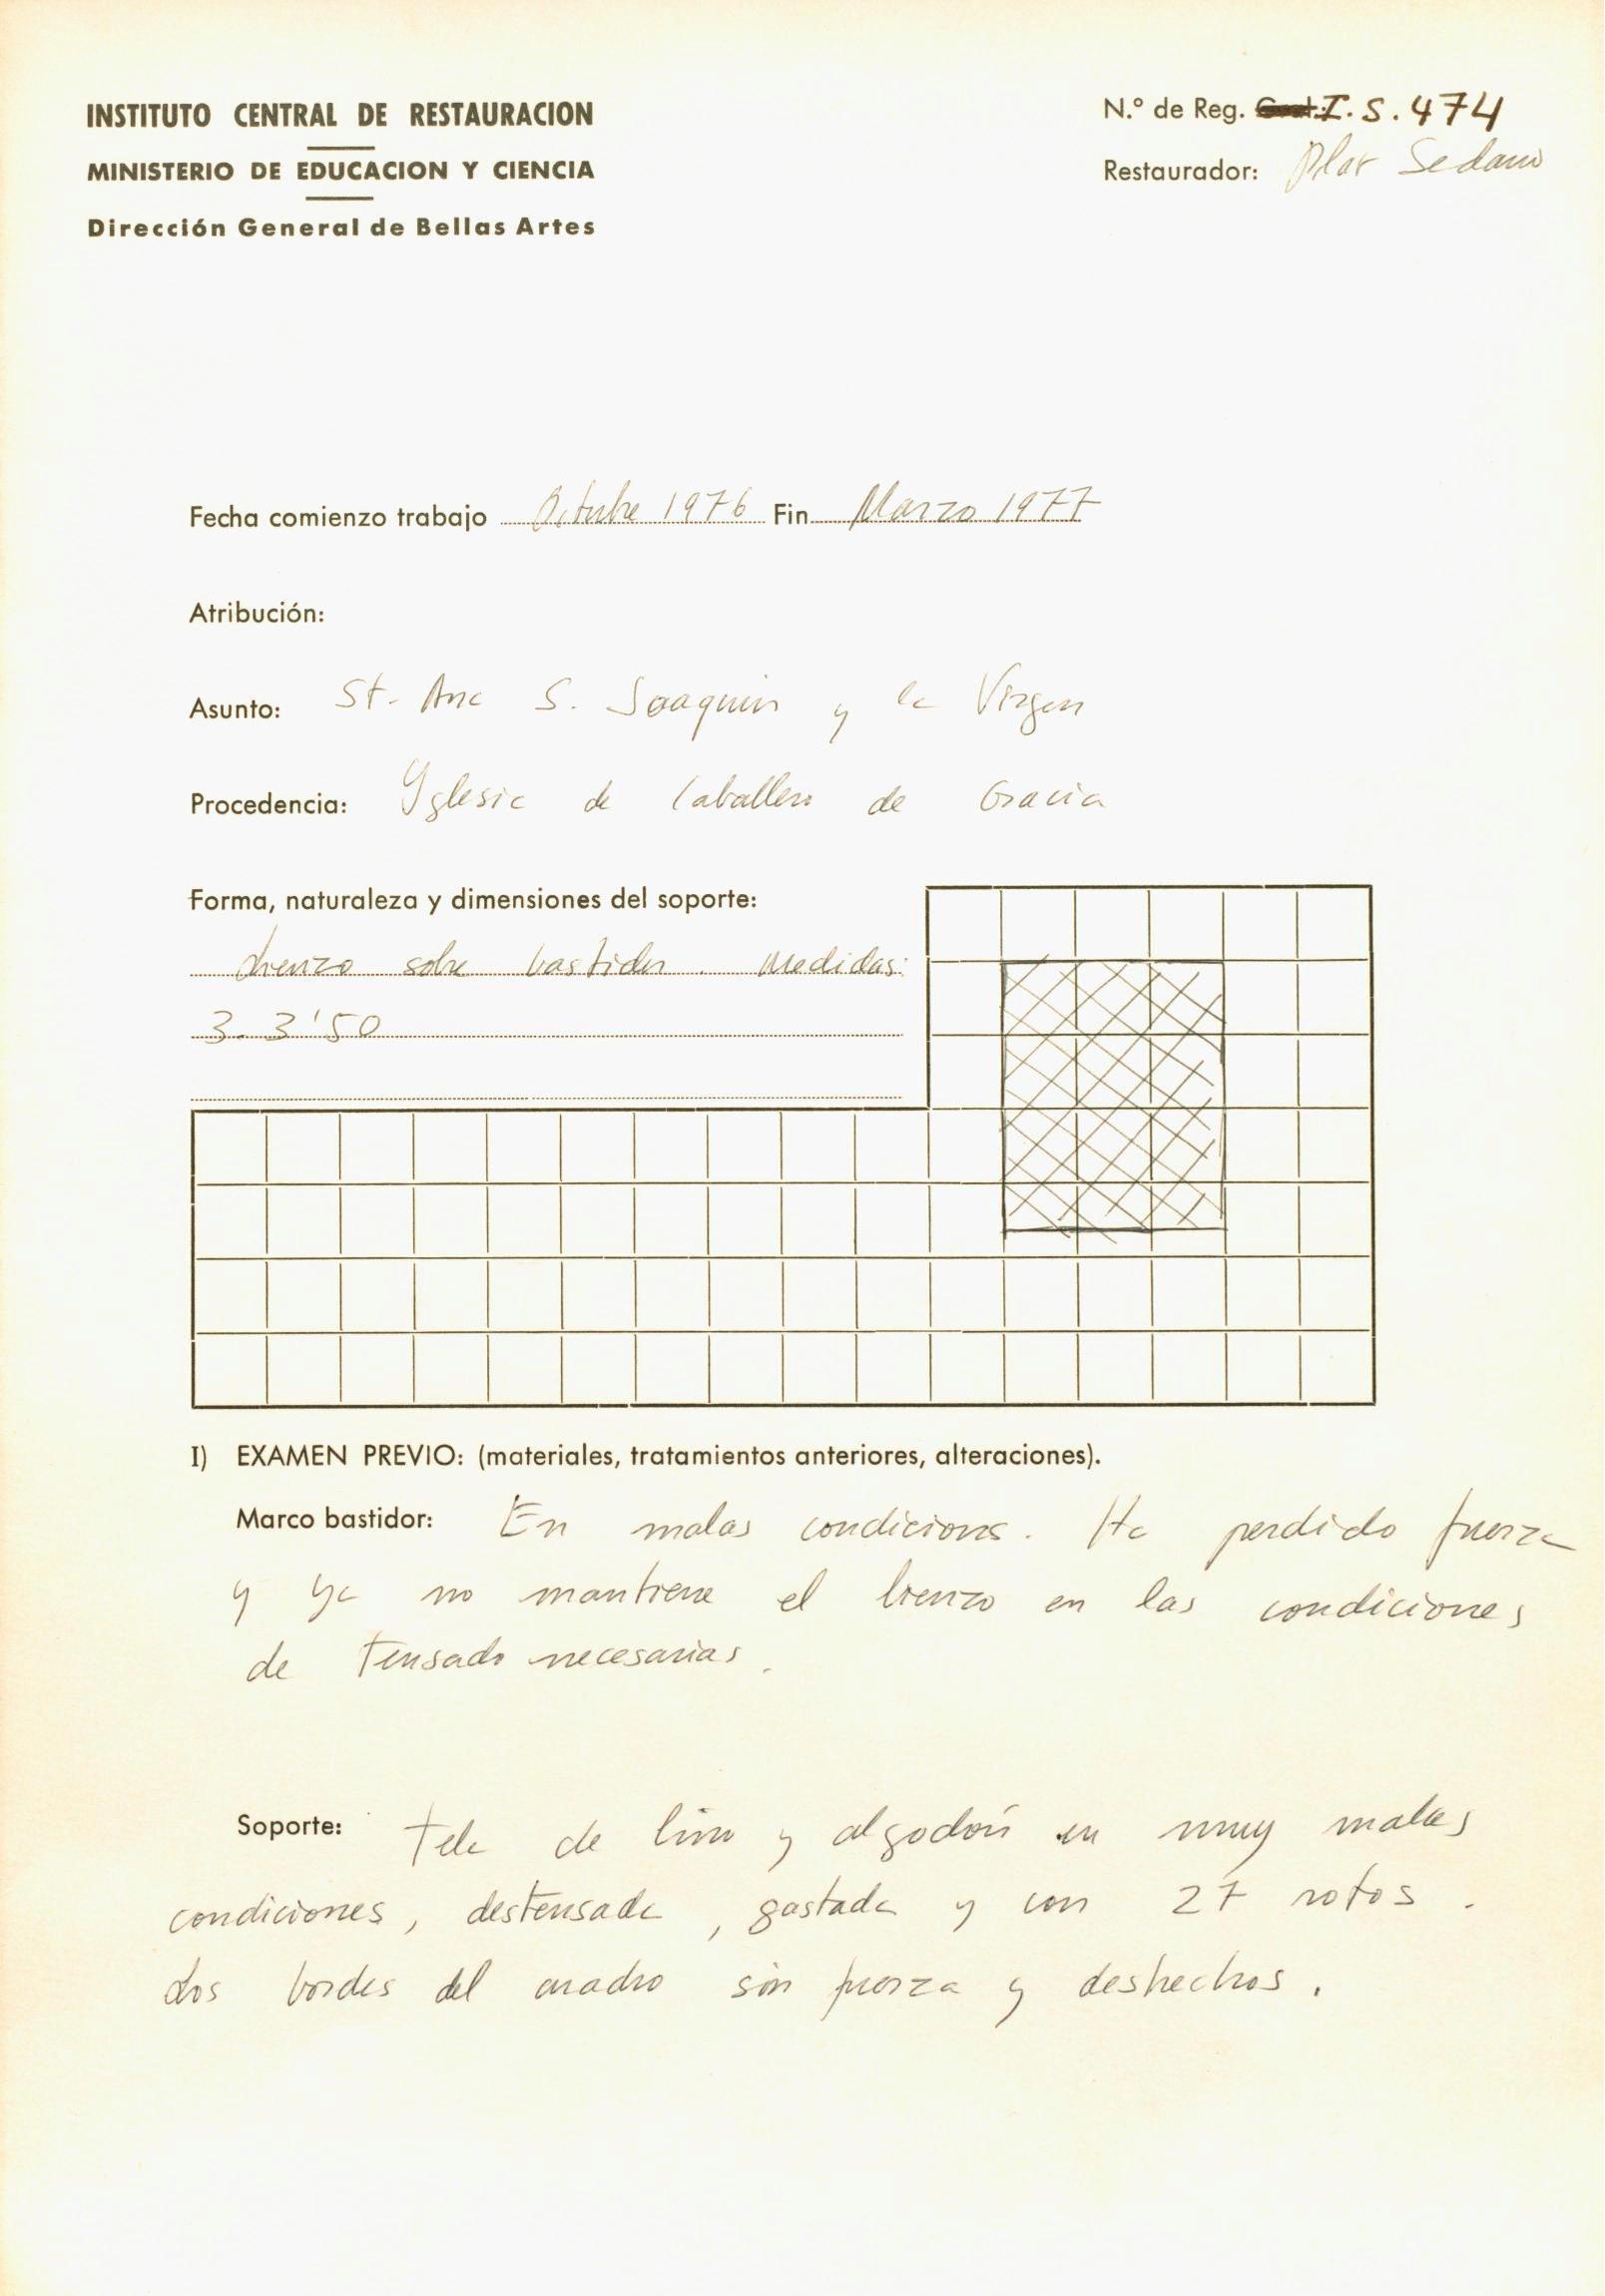 INSTITUTO CENTRAL DE RESTAURACION
MINISTERIO DE EDUCACION Y CIENCIA
Dirección General de Bellas Artes
N.º de Reg. I.S. 474
Restaurador: Pilar Sedano
Fecha comienzo trabajo Octubre 1976 Fin Marzo 1977
Atribución:
Asunto: St. Ana S. Joaquin y la Virgen
Procedencia: Yglesia de Caballero de Gracia
Forma, naturaleza y dimensiones del soporte:
Lienzo sobre bastidor. Medidas:
3. 3'50
I) EXAMEN PREVIO: (materiales, tratamientos anteriores, alteraciones).
Marco bastidor: En malas condiciones. Ha perdido fuerza
y ya no mantiene el lienzo en las condiciones
de tensado necesarias.
Soporte: Tela de lino y algodón en muy malas
condiciones, destensada, gastada y con 27 rotos.
Los bordes del cuadro sin fuerza y deshechos.